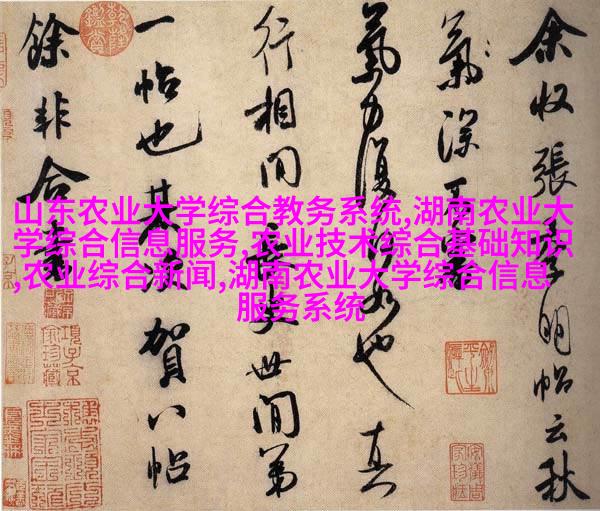 山东农业大学综合教务系统,湖南农业大
学综合信息服务,农业技术综合基础知识
,农业综合新闻,湖南农业大学综合信息
服务系统
余收張季明帖云秋
氣深不審
氣力復何如也真
行相間長史世間第
一帖也其次賀八帖
餘非合書